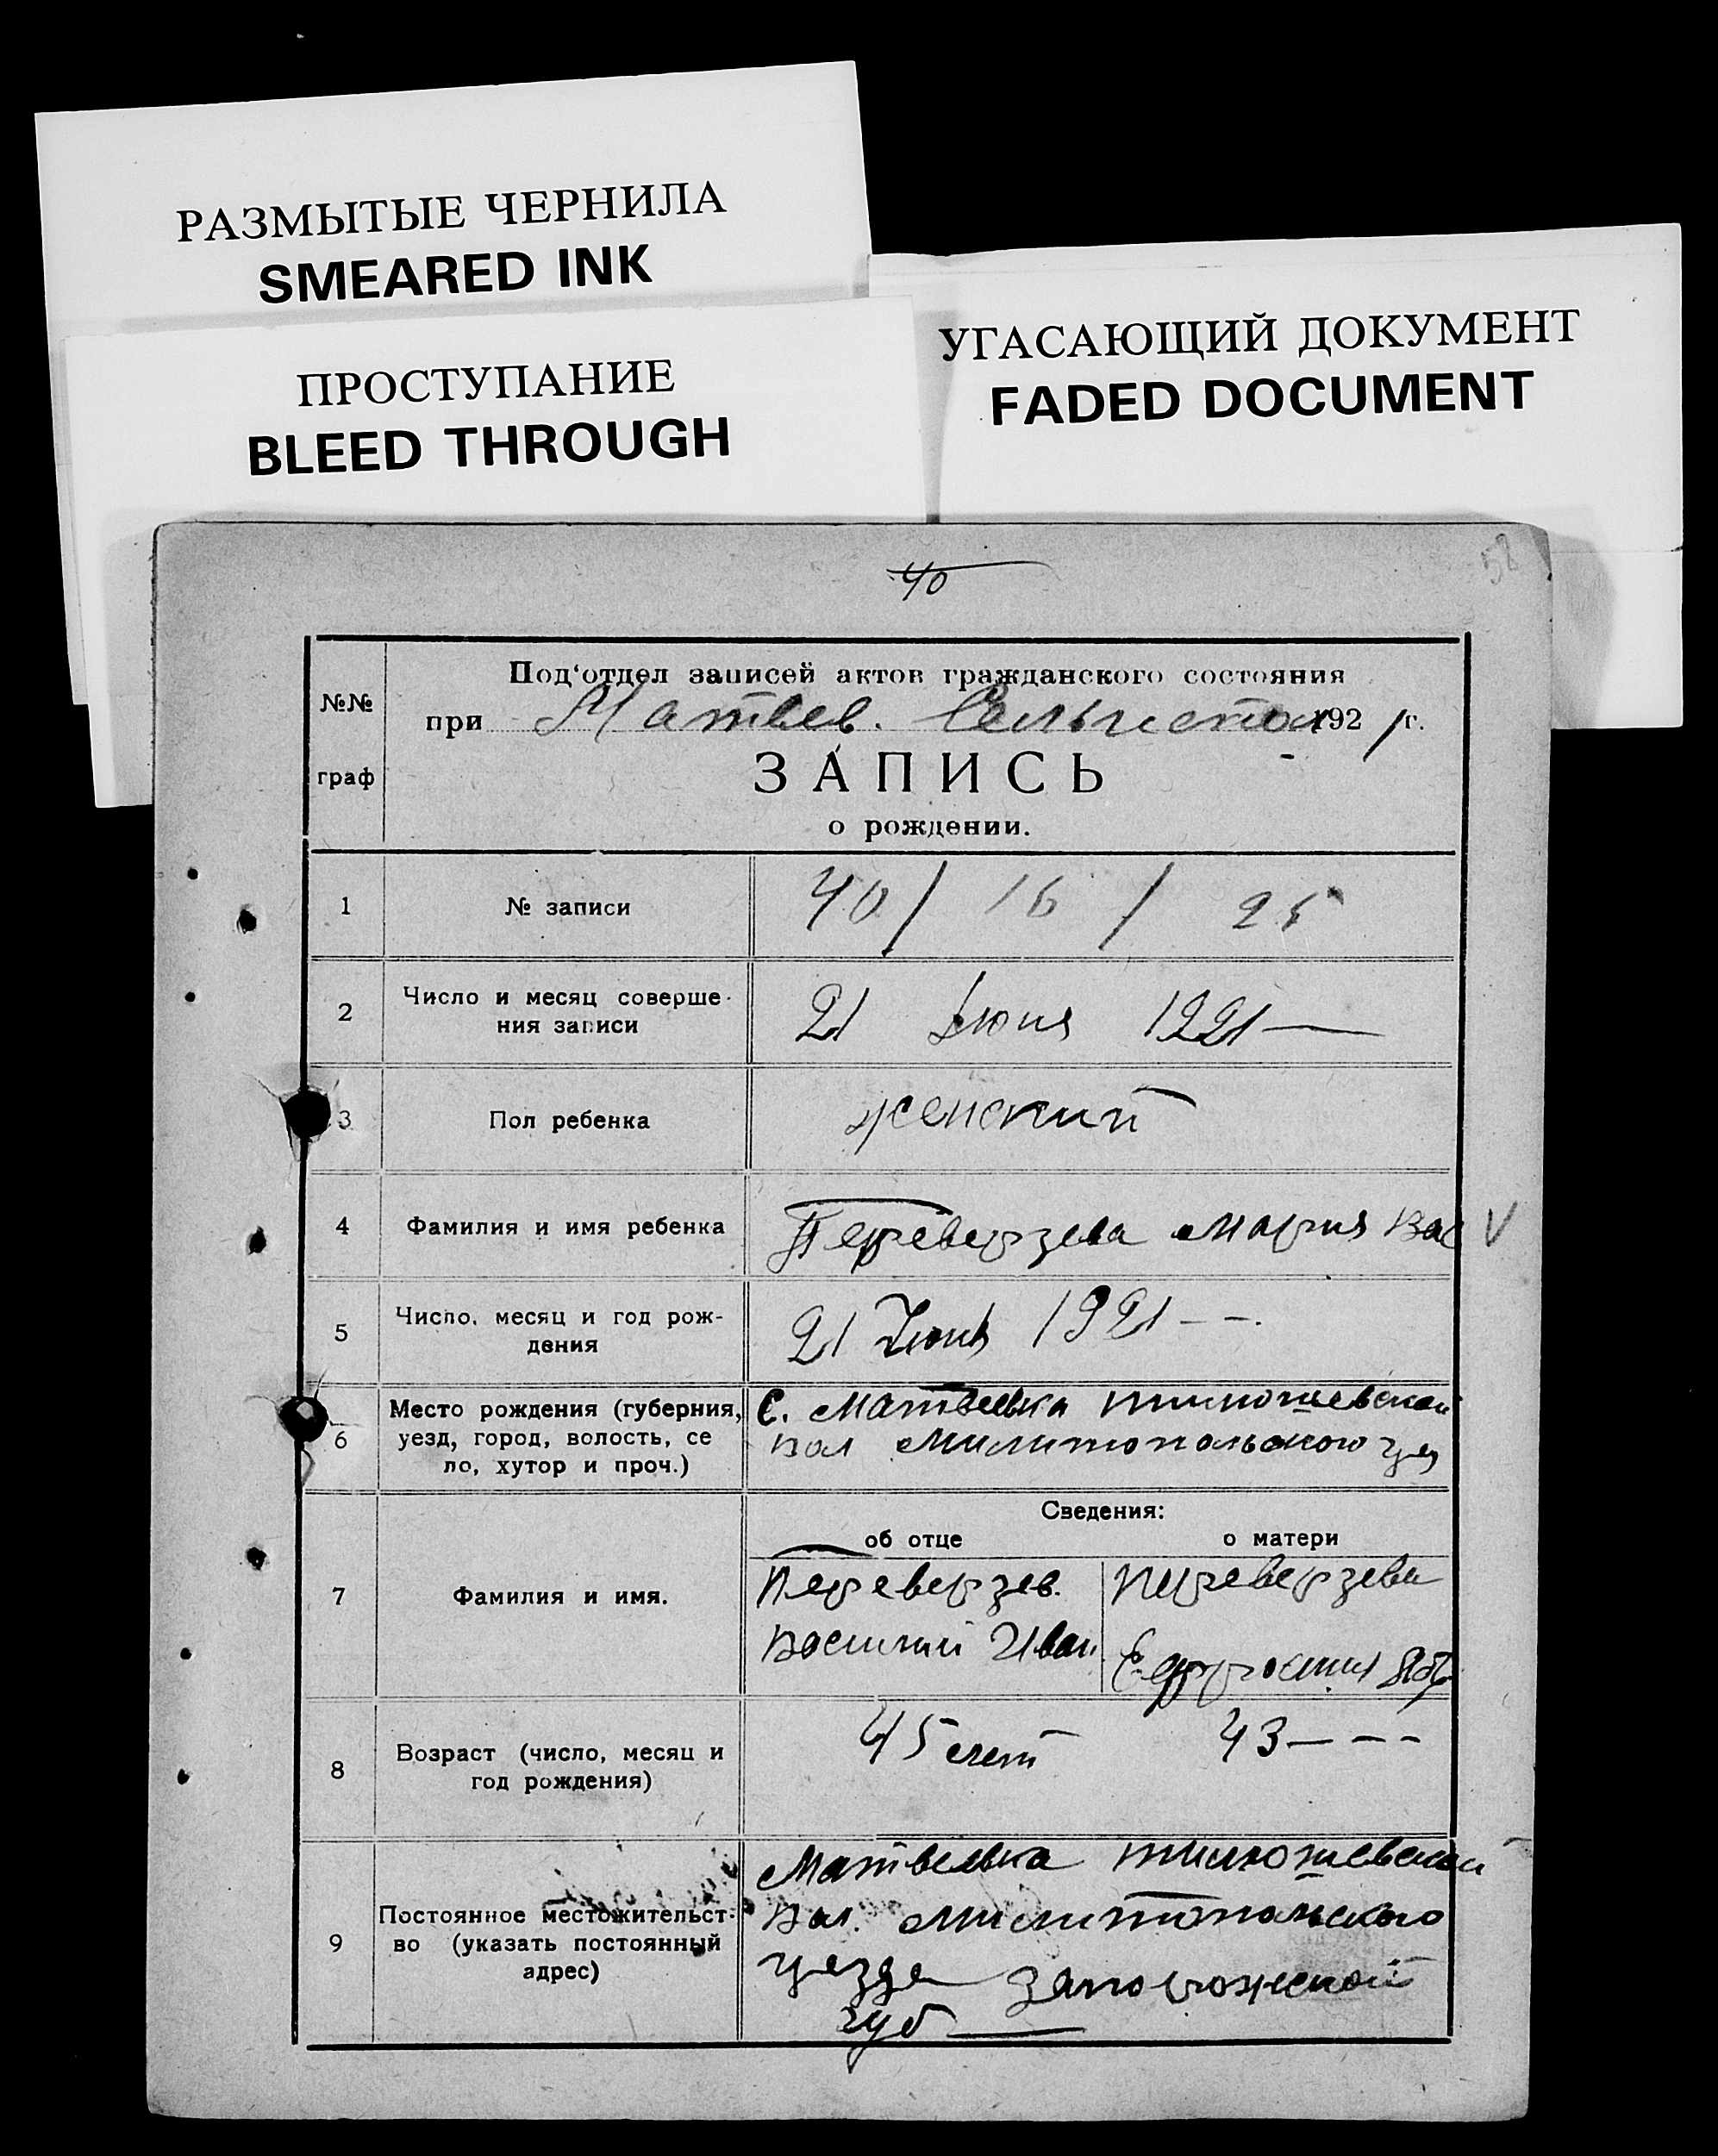 РАЗМЫТЫЕ ЧЕРНИЛА
SMEARED INK
ПРОСТУПАНИЕ
BLEED THROUGH
УГАСАЮЩИЙ ДОКУМЕНТ
FADED DOCUMENT
40
58
№№
граф
Под‘отдел записей актов гражданского состояния
при Матвев. 1921 г.
ЗАПИСЬ
о рождении.
1
№ записи
40 / 16 / 25
2
Число и месяц соверше-
ния записи
21 Июня 1921
3
Пол ребенка
женский
4
Фамилия и имя ребенка
Переверзева Мария Вас V
5
Число, месяц и год рож-
дения
21 Июня 1921 - -.
6
Место рождения (губерния,
уезд, город, волость, се
ло, хутор и проч.)
С. Матвеевка Тимошевской
вол Милитопольского уез
Сведения:
об отце
о матери
7
Фамилия и имя.
Переверзев.
Василий Иван
Переверзева
Ефросиния
8
Возраст (число, месяц и
год рождения)
45 лет
43 - - -
9
Постоянное местожительст-
во (указать постоянный
адрес)
Матвеевка Тимошевской
вол. Милитопольского
уезда Запорожской
губ